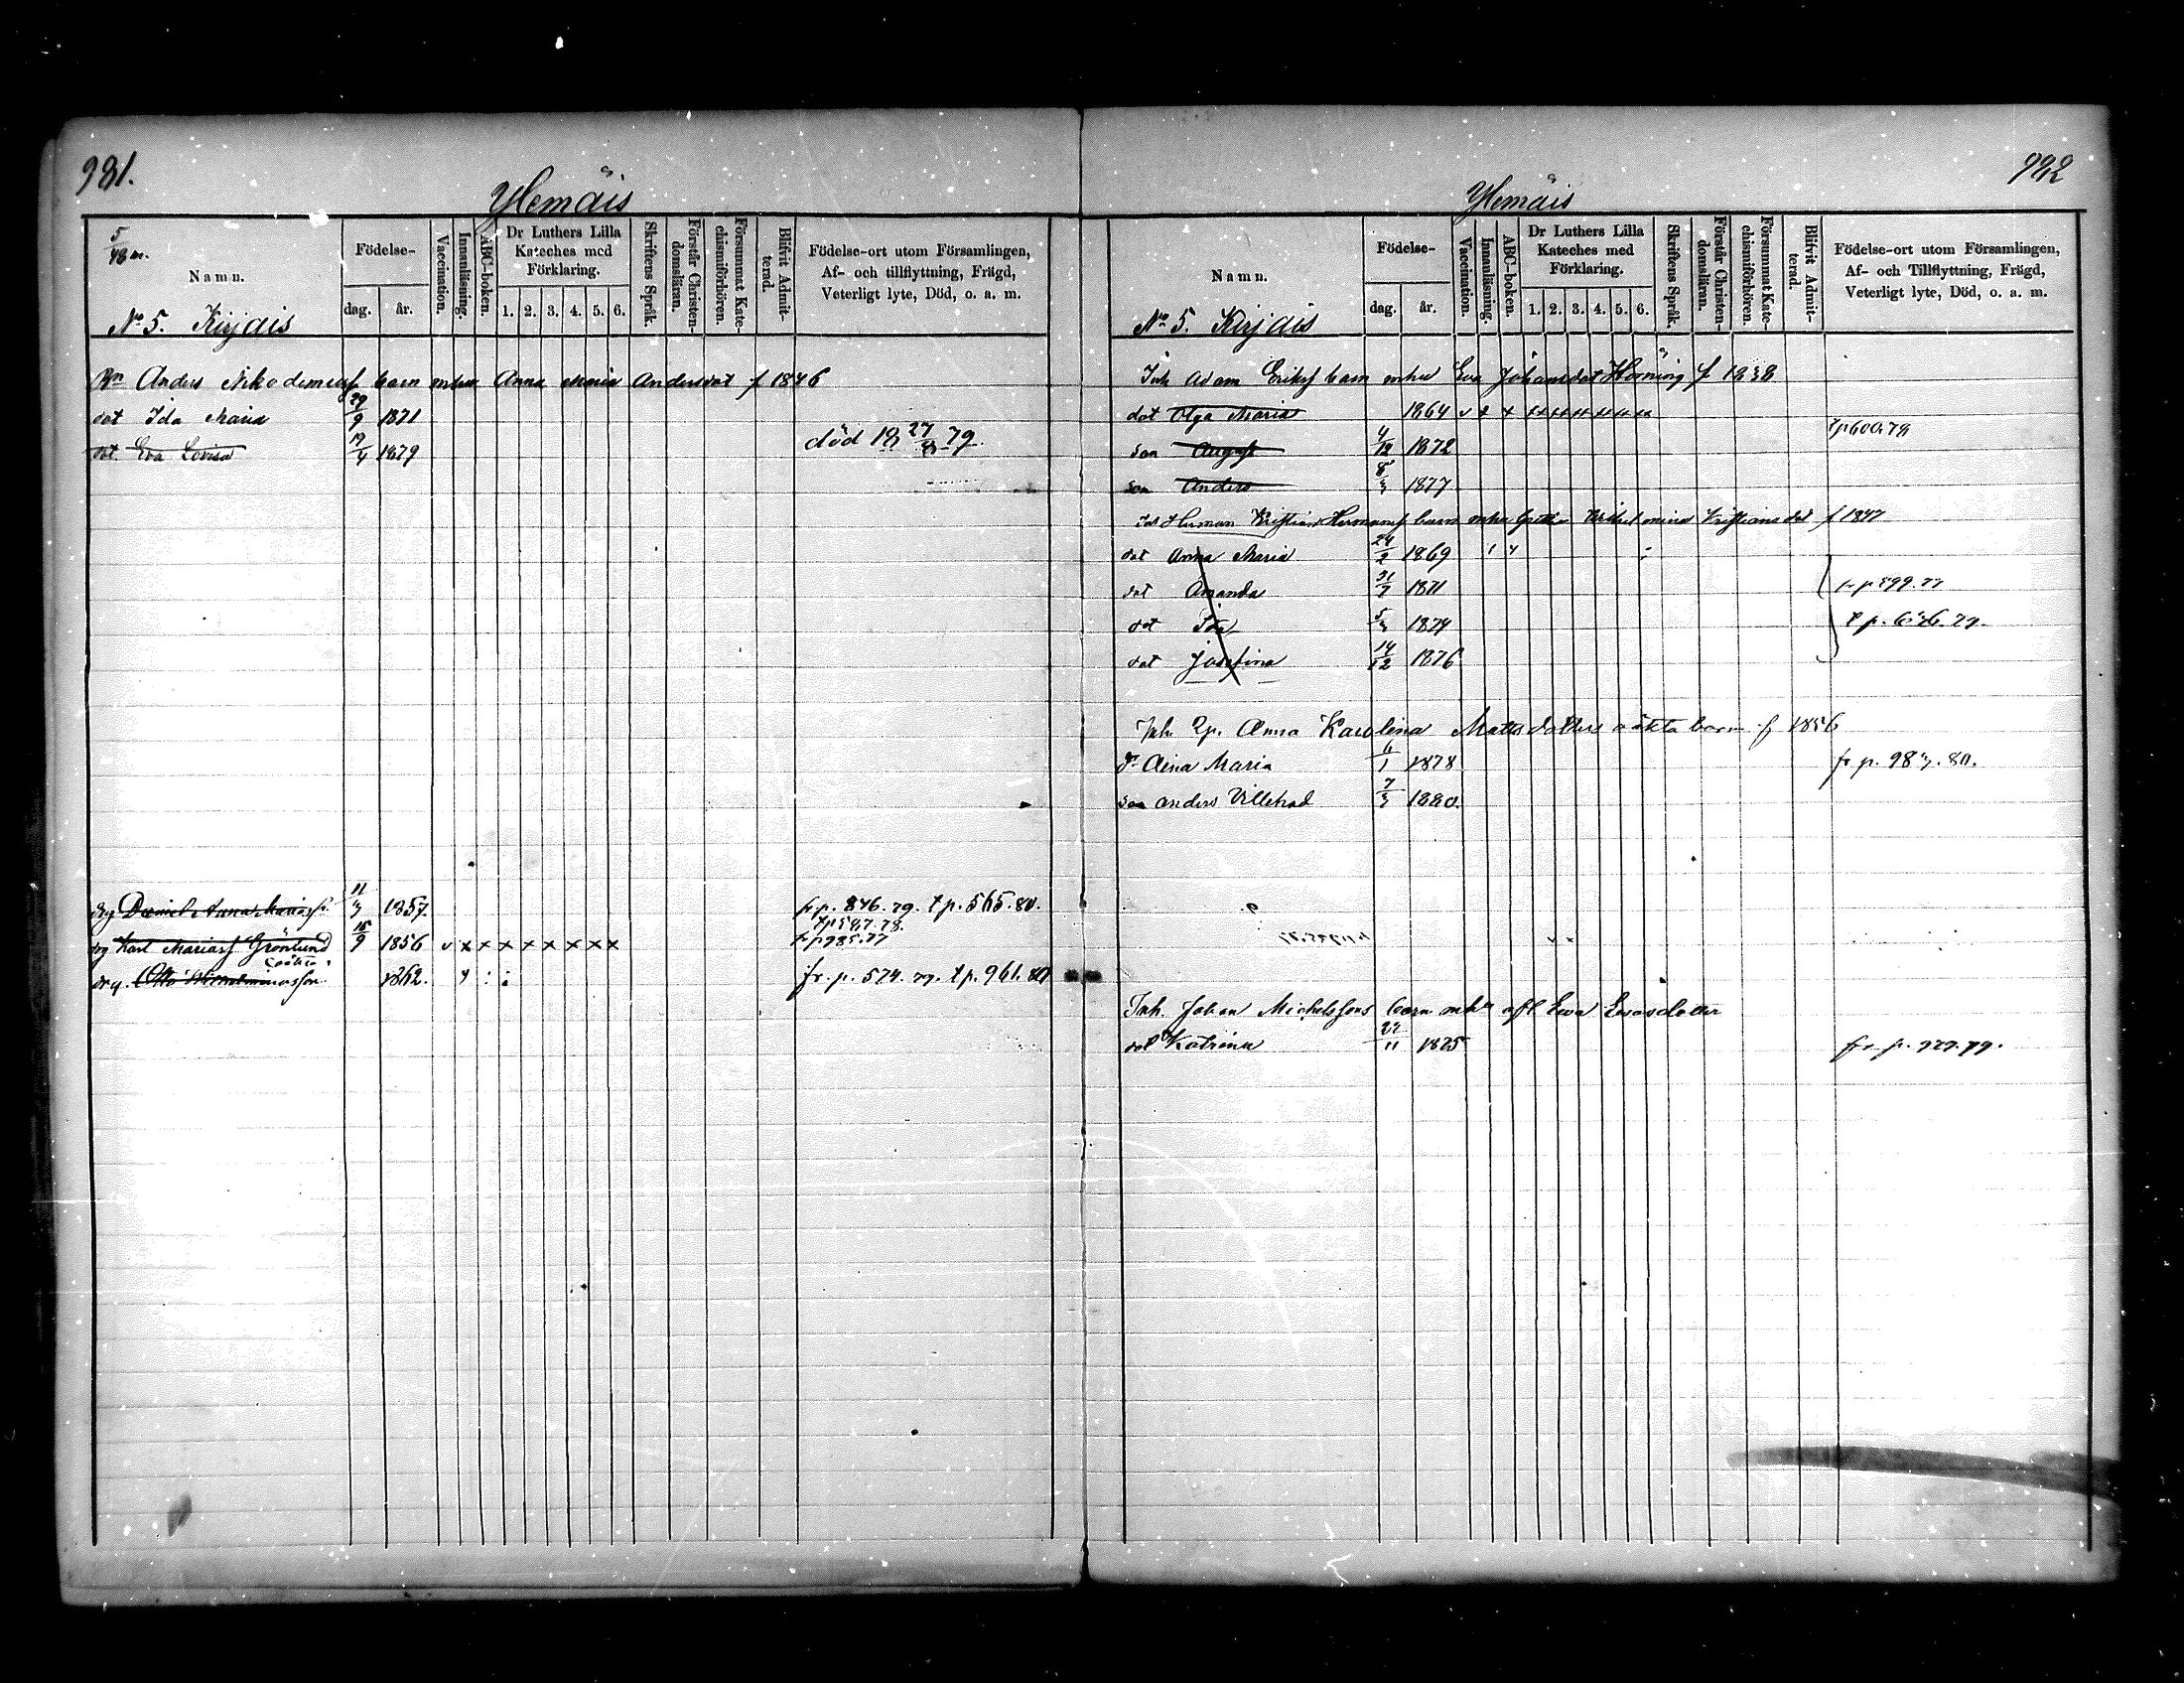 981.
Ylemäis
5/48 m.
Namn.
Födelse-
dag. år.
Vaccination.
Innanläsning.
ABC-boken.
Dr Luthers Lilla Kateches med Förklaring.
1. 2. 3. 4. 5. 6.
Skriftens Språk.
Förstår Christendomsläran.
Försummat Katechismiförhören.
Blifvit Admitterad.
Födelse-ort utom Församlingen,
Af- och tillflyttning, Frägd,
Veterligt lyte, Död, o. a. m.
No 5. Kirjais
Bn Anders Nikodemusf barn mhu Anna Maria Andersdot f 1846
dot Ida Maria 29/9 1871
dot Eva Lovisa 19/4 1879 död 18 27/8 79.
drg Daniel Anna Mariasf. 11/3 1857. fr. p. 846. 79. t p. 565. 80.
t p 587. 78.
drg Karl Mariasf Grönlund 15/9 1856 v x x x x x x x x fr p 985. 77
drg. Otto Wilhelminasson 1862. fr. p. 574. 79. t p. 961. 80
982
Ylemäis
Namn.
Födelse-
dag. år.
Vaccination.
Innanläsning.
ABC-boken.
Dr Luthers Lilla Kateches med Förklaring.
1. 2. 3. 4. 5. 6.
Skriftens Språk.
Förstår Christendomsläran.
Försummat Katechismiförhören.
Blifvit Admitterad.
Födelse-ort utom Församlingen,
Af- och Tillflyttning, Frägd,
Veterligt lyte, Död, o. a. m.
No 5. Kirjais
Inh Adam Eriksf barn mhu Eva Johansdot Horning f 1838
dot Olga Maria 1864
t p 600. 78
son August 4/12 1872
son Anders 8/3 1877
Inh Herman Kristian Hermansf barn mhu Greta Wilhelmina Kristiansdot f 1847
dot Anna Maria 24/2 1869
dot Amanda 31/7 1871 fr p 599. 77
dot Ida 5/3 1874 t p. 626. 79.
dot Josefina 14/12 1876
Inh. Anna Karolina Mattsdotters oäkta barn f 1856
dr Aina Maria 6/1 1878 fr p. 987. 80.
son Anders Villehad 7/3 1880.
Inh. Johan Michelssons barn mhu afl Eva Evasdotter
dot Katrina 22/11 1825 fr p. 929. 79.